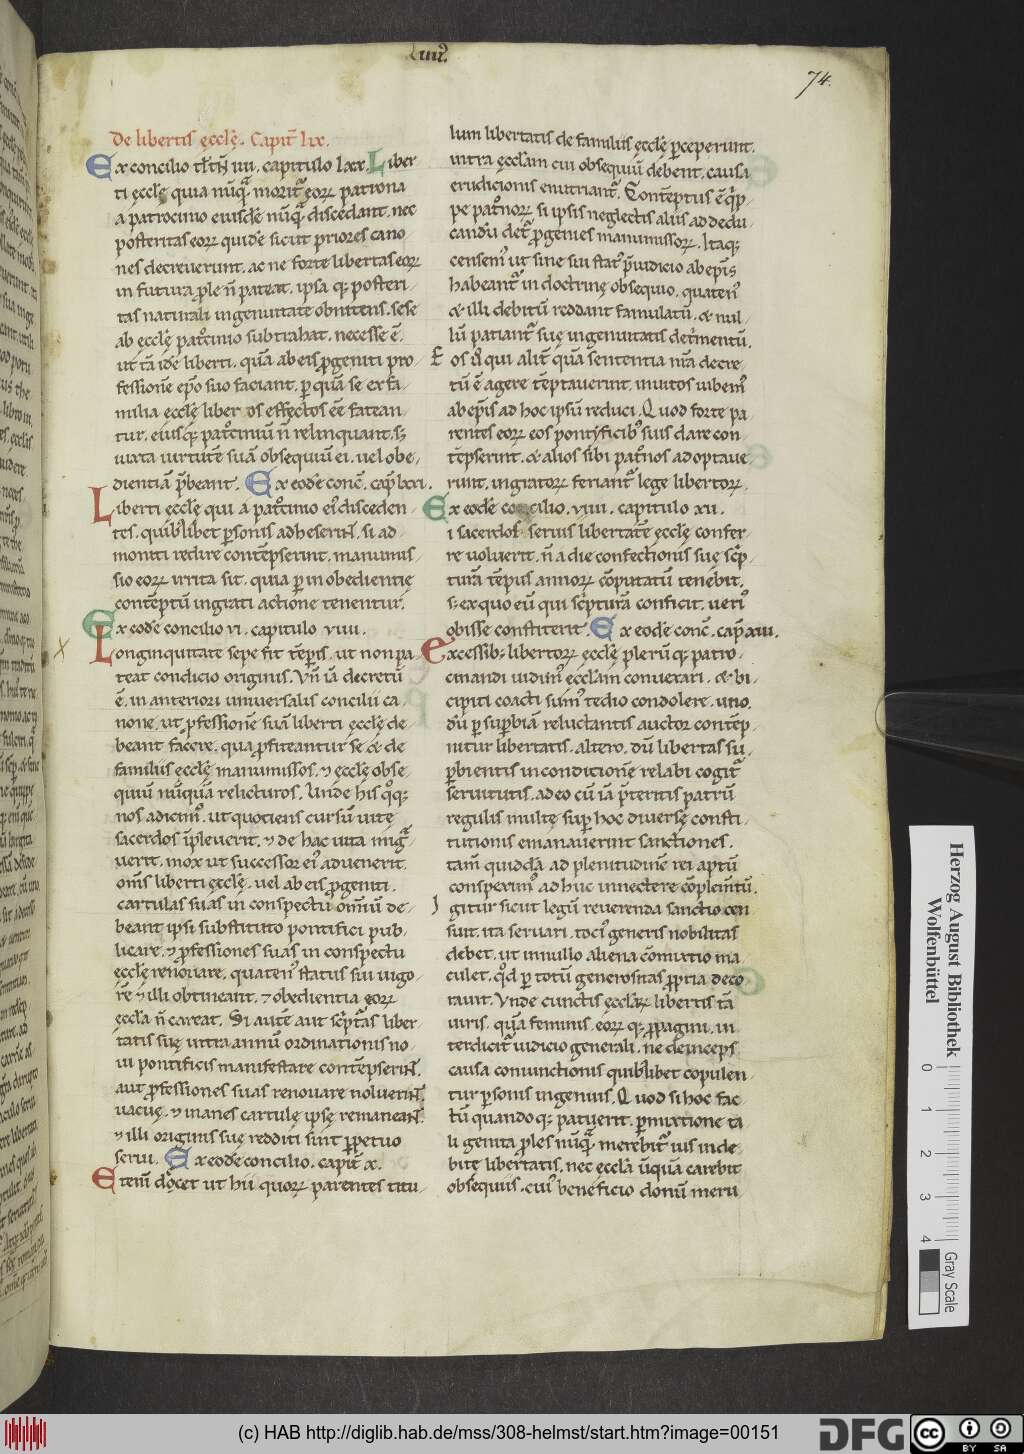 74.
De libertis ęcclę. Capit̄ lix.
Ex concilio tłtñ iiii. capitulo lxx. Liber
ti ęcclę quia nūq̄ᵃ morit᷑ eorꝝ patrona
a patrocinio eiusdē nūq̄ᵃ discedant. nec
posteritas eorꝝ quidē sicut priores cano
nes decreverunt. ac ne forte libertas eorꝝ
in futura ꝓle n̄ pateat. ipsa q; posteri
tas naturali ingenuitate obnitens. sese
ab ecclę patͦcinio subtrahat. necesse ē.
ut tā idē liberti. quā ab eis ꝓgeniti pro
fessionē ep̄o suo faciant. ꝑ quā se ex fa
milia ecclę liberos effectos ēē fatean
tur. eiusq; patͦciniū n̄ relinquant. s;
iuxta uirtutē suā obsequiū ei. uel obe
dientiā p̄beant. Ex eodē conc̄. cap̄ lxxi.
Liberti ecclę qui a patͦcinio ei᷒ disceden
tes. quib᷒libet ꝑsonis adheserint̄. si ad
moniti redire contēpserint. manumis
sio eorꝝ irrita sit. quia ꝑ inobedientię
contēptū ingrati actione tenentur.
Ex eodē concilio vi. capitulo viiii.
Longinquitate sepe fit tēpis. ut non pa
teat condicio originis. Vn̄ iā decretū
ē. in anteriori universalis concilii ca
none. ut ꝓfessionē suā liberti ęcclę de
beant facere. qua ꝓfiteantur se & de
familiis ęcclę manumissos. ⁊ ęcclę obse
quiū nūquā relicturos. Unde his qͦq;
nos adicim᷒. ut quotiens cursū uitę
sacerdos īpleuerit. ⁊ de hac uita miḡᵃ
uerit. mox ut successor ei᷒ aduenerit.
om̄s liberti ęcclę. uel ab eis ꝓgeniti.
cartulas suas in conspectu om̄iū de
beant ipsi substituto pontifici pub
licare. ⁊ ꝓfessiones suas in conspectu
ęcclę renouare. quaten᷒ status sui uigo
rē ⁊ illi obtineant. ⁊ obedientia eorꝝ
ęccła n̄ careat. Si autē aut scp̄tas liber
tatis suę intra annū ordinationis no
ui pontificis manifestare contēpserint̄.
aut ꝓfessiones suas renouare noluerint̄.
uacuę. ⁊ inanes cartulę ipsę remaneant̄.
⁊ illi originis suę redditi sint ꝑpetuo
serui. Ex eodē concilio. capit̄ x.
Eteni᷒ docet ut hii quorꝝ parentes titu
lum libertatis de familiis ęcclę ꝑceperunt.
intra ęccłam cui obsequiū debent. causa
erudicionis enutriant᷑. Contēptus ē q̄ip
pe patͦnorꝝ si ipsis neglectis aliis ad edu
candū det᷑ ꝓgenies manumissorꝝ. Itaq;
censem᷒ ut sine sui stat᷒ p̄iudicio ab ep̄is
habeant᷑ in doctrinę obsequio. quaten᷒
& illi debitū reddant famulatū. & nul
lū patiant᷑ suę ingenuitatis det᷑mentū.
Eos ū qui alit᷑ quā sententia n̄ra decre
tū ē agere tēptauerint. inuitos iubem᷒
ab ep̄is ad hoc ipsū reduci. Quod forte pa
rentes eorꝝ eos pontificib᷒ suis dare con
tēpserint. & alios sibi pat᷒nos adoptaue
runt. ingratorꝝ feriant᷑ lege libertorꝝ.
Ex eodē concilio. viiii. capitulo xii.
i sacerdos servus libertatē ecclę confer
re voluerit. n̄ a die confectionis suę scp̄
turā tēpus annorꝝ cōputatū tenebit.
s; ex quo eū qui sc͛pturā conficit. ueri᷒
obisse constiterit. Ex eodē conc̄. cap̄ xiii.
Excessib; libertorꝝ ęcclę plerūq; patro
cinandi uidim᷒ ęccłam conuexari. & bi
cipiti coacti sum᷒ tedio condolere. uno.
dū ꝑ suꝑbiā reluctantis auctor contēp
nitur libertatis. altero. dū libertas su
ꝑbientis in conditionē relabi cogit᷑
seruitutis. adeo cū iā p̄teritis patrū
regulis multę suꝑ hoc diversę consti
tutionis emanauerint sanctiones.
tam̄ quiddā ad plenitudinē rei aptū
consperim᷒ ad huc innectere cōplem̄tū.
Igitur sicut legū reuerenda sanctio cen
suit. ita seruari. toci᷒ generis nobilitas
debet. ut in nullo aliena cōmixtio ma
culet. qͦd ꝑ totū generositas ꝓpria deco
rauit. Vnde cunctis ęccłarꝝ libertis tā
uiris. quā feminis. eorꝝ q; ꝓpagini. in
terdicit᷑ iudicio generali. ne deinceps
causa coniunctionis quib᷒libet copulen
tur ꝑsonis ingenuis. Quod si hoc fac
tū quandoq; patuerit. ꝑmixtione ta
li genita ꝓles nūq̄ᵃ merebit᷑ ius inde
bitę libertatis. nec ęccła ūquā carebit
obsequiis. cui᷒ beneficio donū meru
Herzog August Bibliothek
Wolfenbüttel
0
1
2
3
4
Gray Scale
(c) HAB http://diglib.hab.de/mss/308-helmst/start.htm?image=00151
DFG
cc
BY
SA